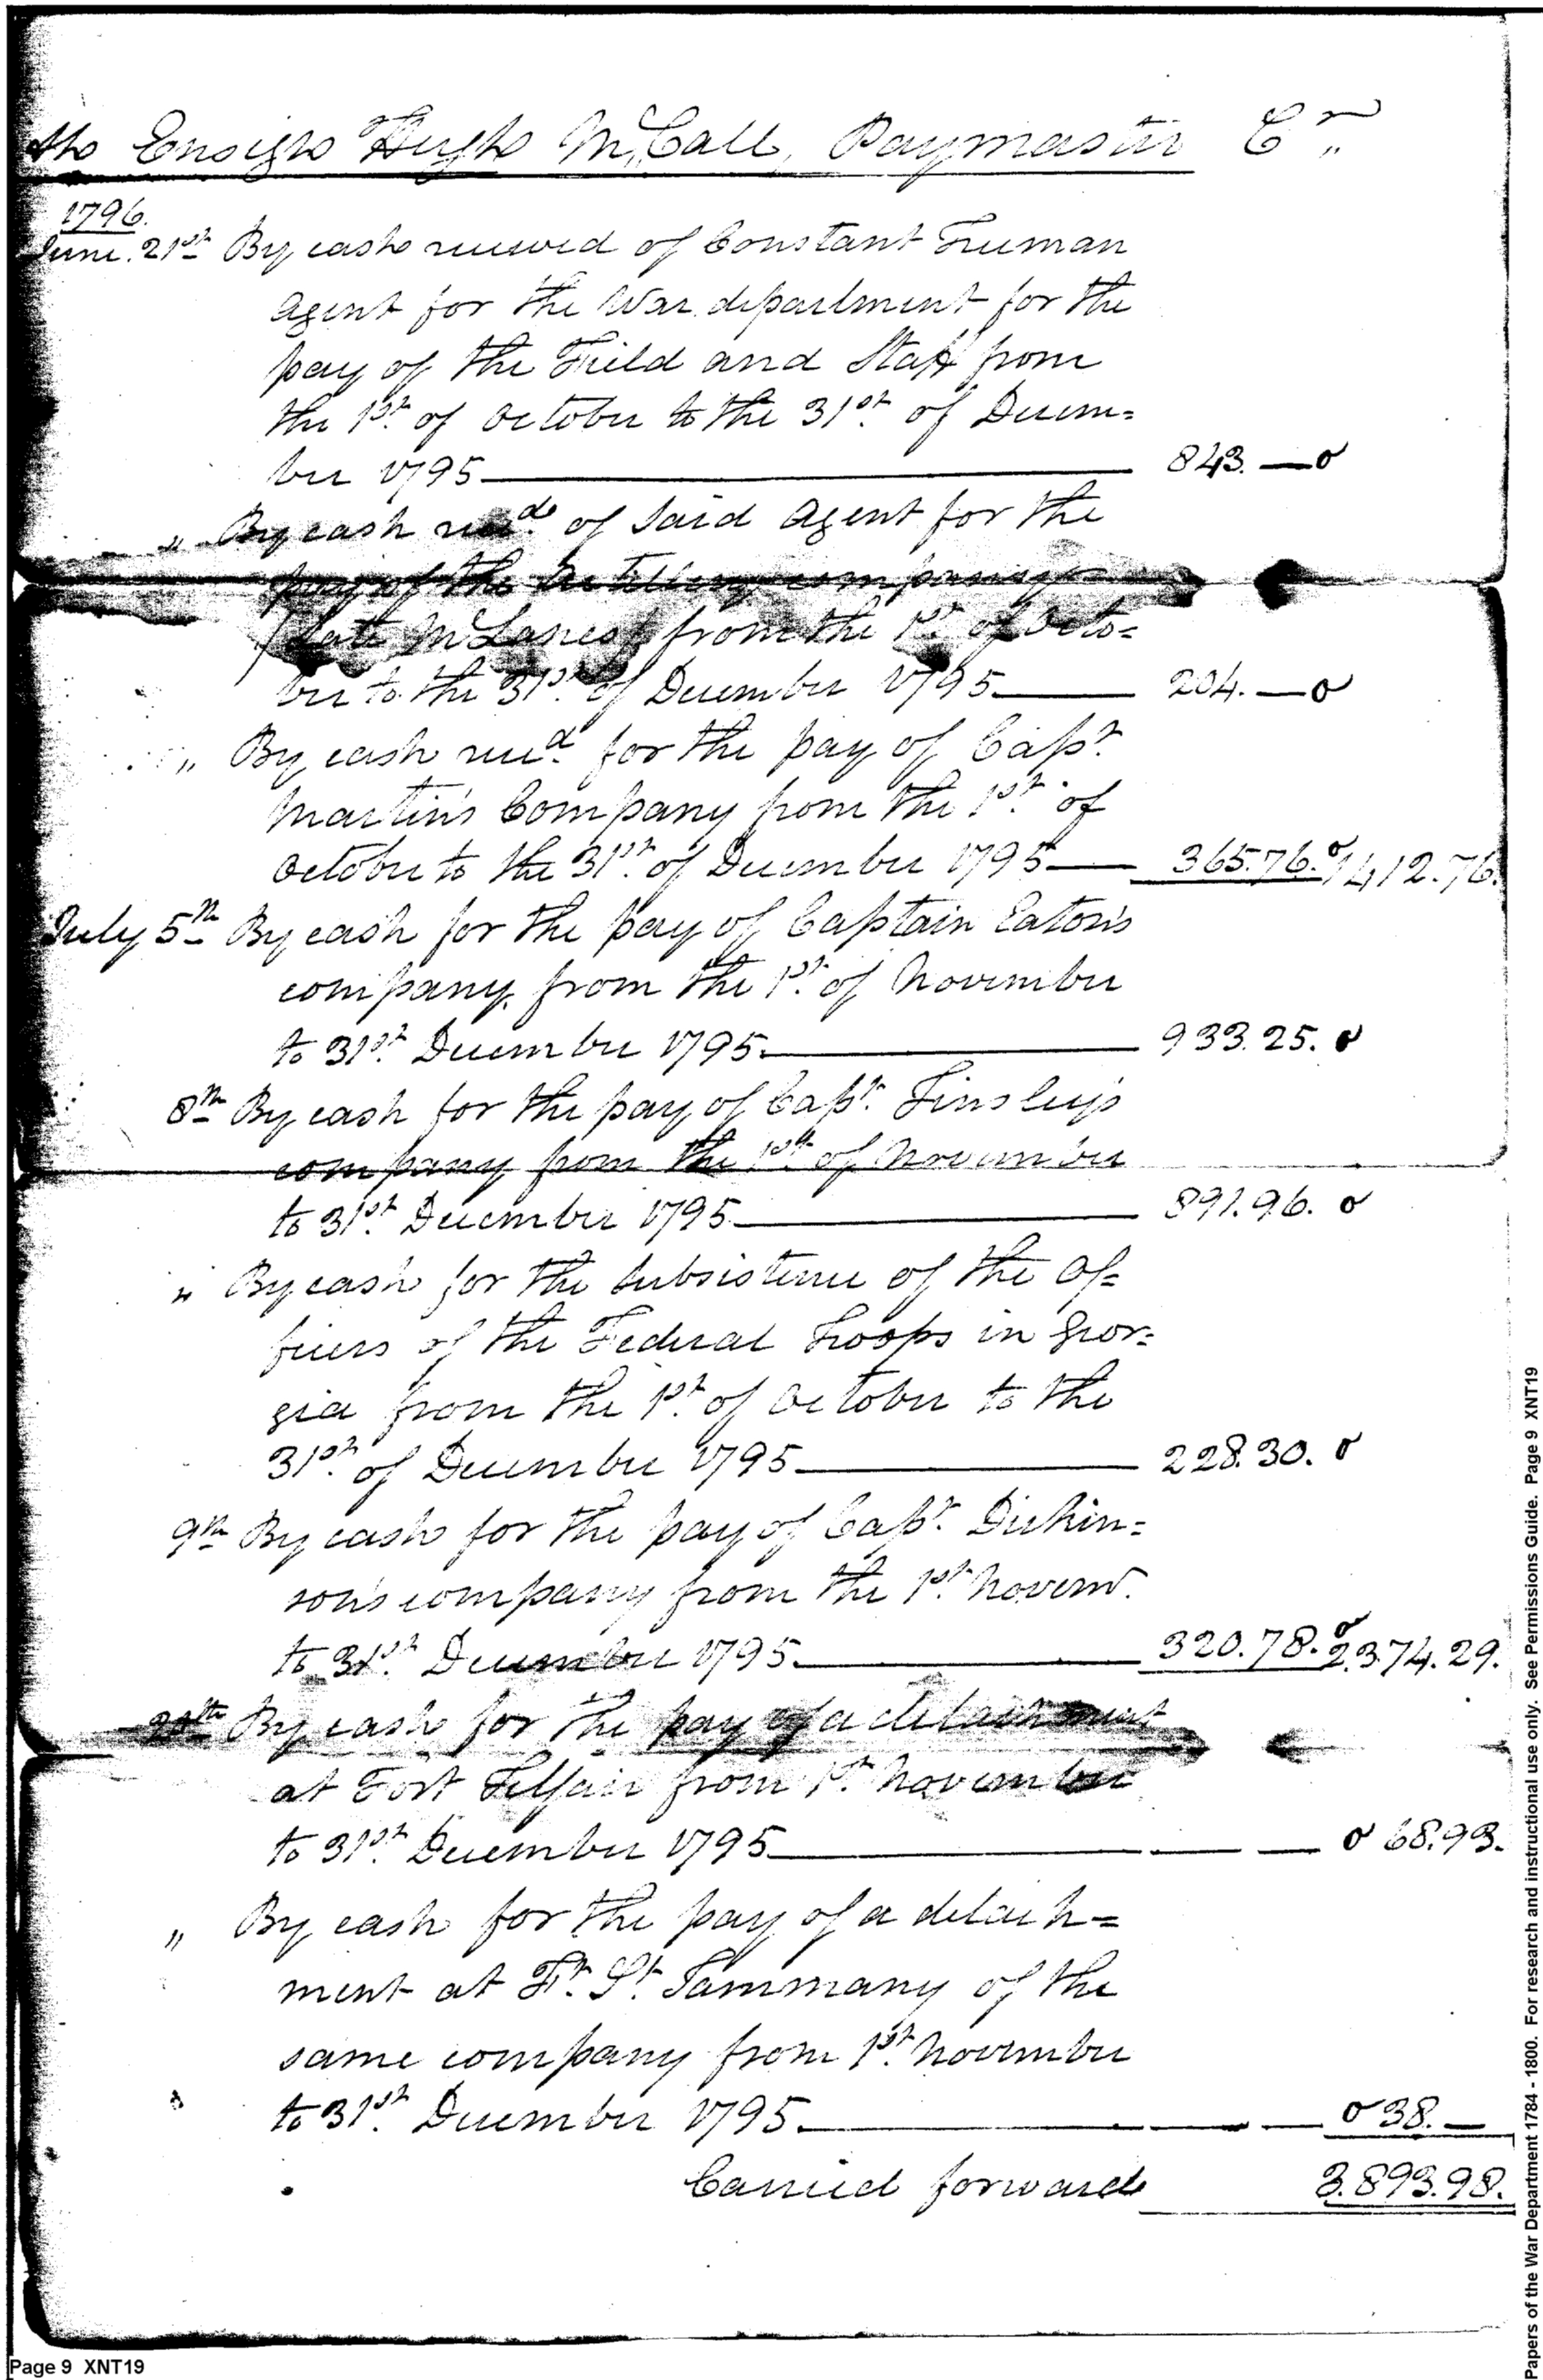 th Ensign Hugh McCall, Paymaster Cr.
1796.
June. 21st By cash received of Constant Freeman
agent for the War department for the
pay of the Field and Staff from
the 1st. of October to the 31st. of Decem=
ber 1795 843. —o
„ By cash recd. of said agent for the
pay of the Artillery company
(late McLanes) from the 1st. of Octo=
ber to the 31st. of December 1795 204. —o
„ By cash recd. for the pay of Capt.
Martin's Company from the 1st. of
October to the 31st. of December 1795 365.76. o 1412.76.
July 5th By cash for the pay of Captain Eaton's
company, from the 1st. of November
to 31st. December 1795. 933.25. o
8th By cash for the pay of Capt. Tinsley's
company from the 1st. of November
to 31st. December 1795 891.96. o
„ By cash for the subsistence of the Of=
ficers of the Federal Troops in Geor=
gia from the 1st. of October to the
31st. of December 1795 228.30. o
9th By cash for the pay of Capt. Dickin=
son's company from the 1st. Novemr.
to 31st. December 1795. 320.78. o 2.374.29.
By cash for the pay of a detachment
at Fort Telfair from 1st. November
to 31st. December 1795 o 68.93.
„ By cash for the pay of a detach=
ment at Ft. St. Tammany of the
same company from 1st. November
to 31st. December 1795. o 38.—
Carried forward 3.893.98.
Page 9 XNT19
Papers of the War Department 1784 - 1800. For research and instructional use only. See Permissions Guide. Page 9 XNT19